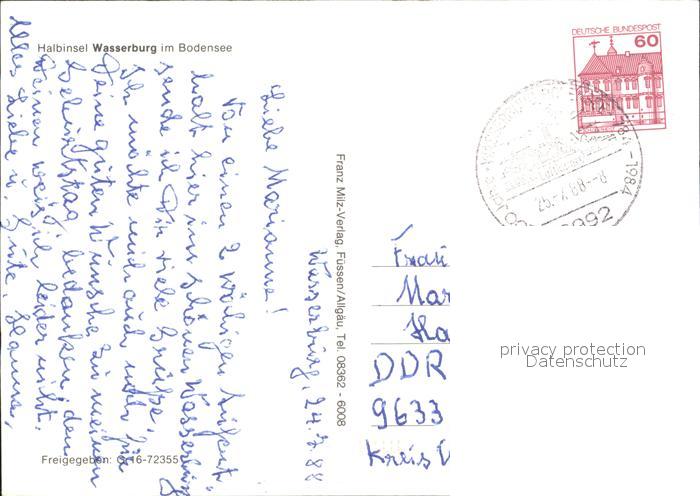 Halbinsel Wasserburg im Bodensee
DEUTSCHE BUNDESPOST
60
-1984
8992
Wasserburg, 24.7.88
Liebe Marianne!
Von einen 2 wöhigen
halt hier im schönen Wasserburg
sende ich Dir viele Grüße.
Ich möchte mich auch noch für
Deine guten Wünsche zu meinen
Geburtstag bedanken, den
Deinen weis ich leider nicht.
Alles Liebe u. Gute,
Franz Milz-Verlag, Füssen/Allgäu, Tel. 08362 - 6008
Frau
Mar
Ha
DDR
9633
Kreis
privacy protection
Datenschutz
Freigegeben: G 16-72355